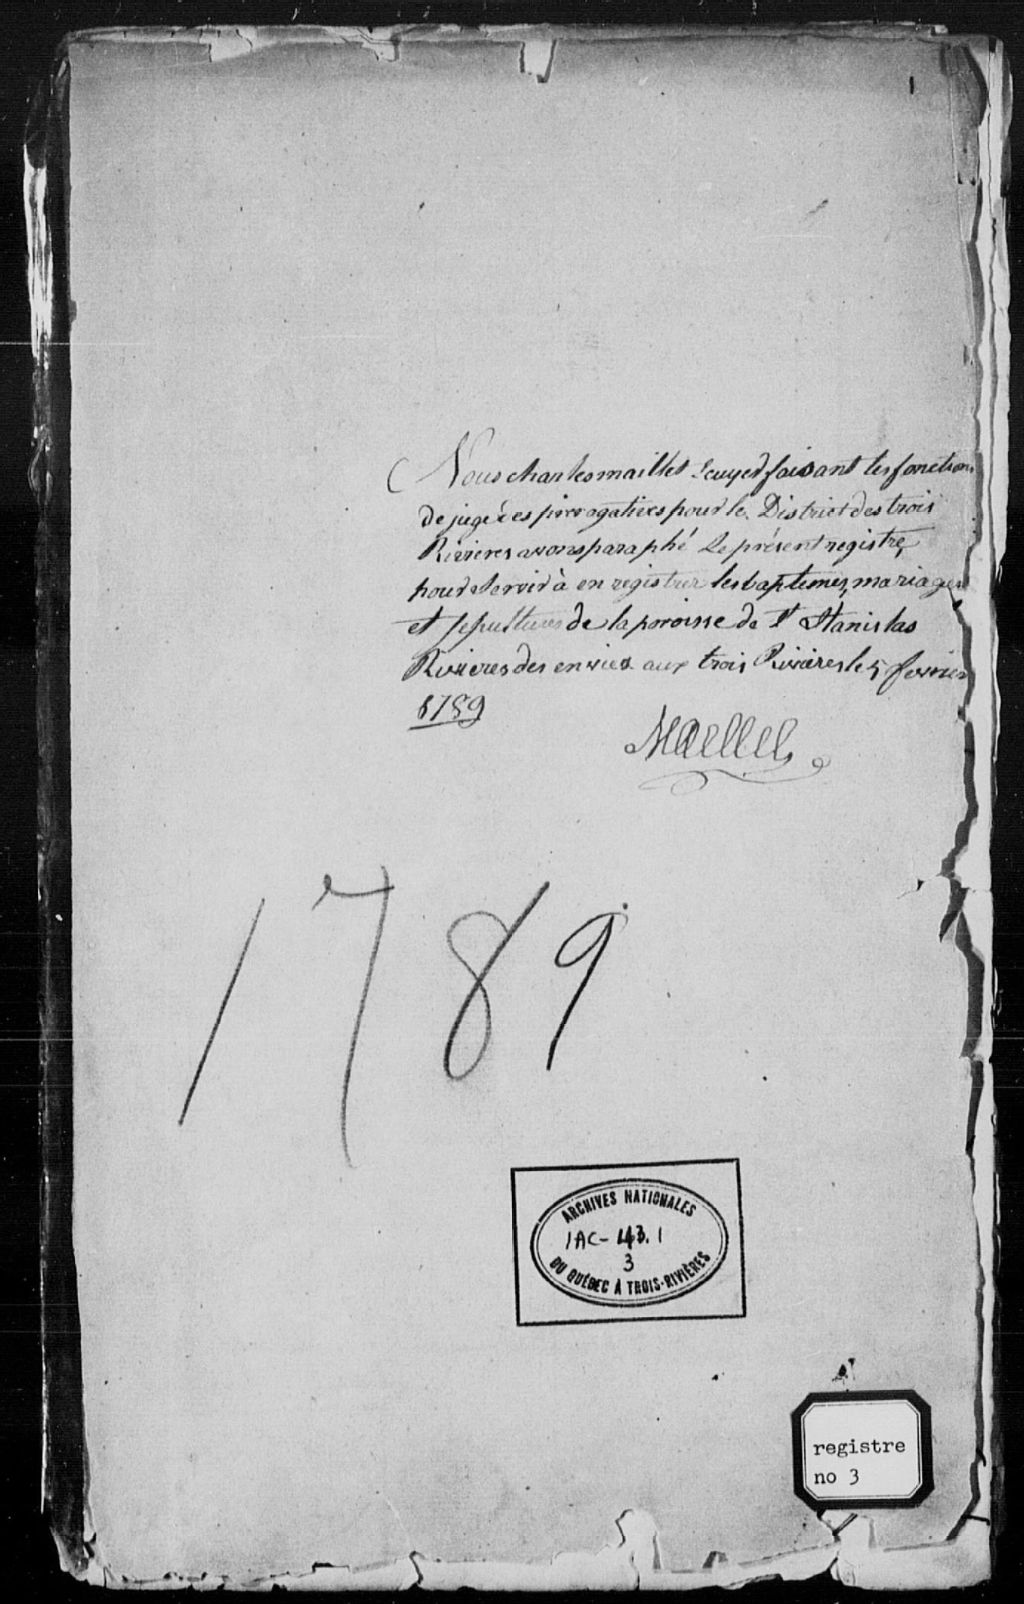 Nous charles maillet Ecuyer faisant les fonctions
de juge des prerogatives pour le District des trois
Rivieres avons paraphé le présent registre,
pour servir à en registrer les baptemes, mariages
et sepultures de la paroisse de St Stanislas
Rivieres des envies aux trois Rivières le 5 fevrier
1789
Maillet
1789
ARCHIVES NATIONALES
1AC-43.1
3
DU QUÉBEC À TROIS-RIVIÈRES
registre
no 3